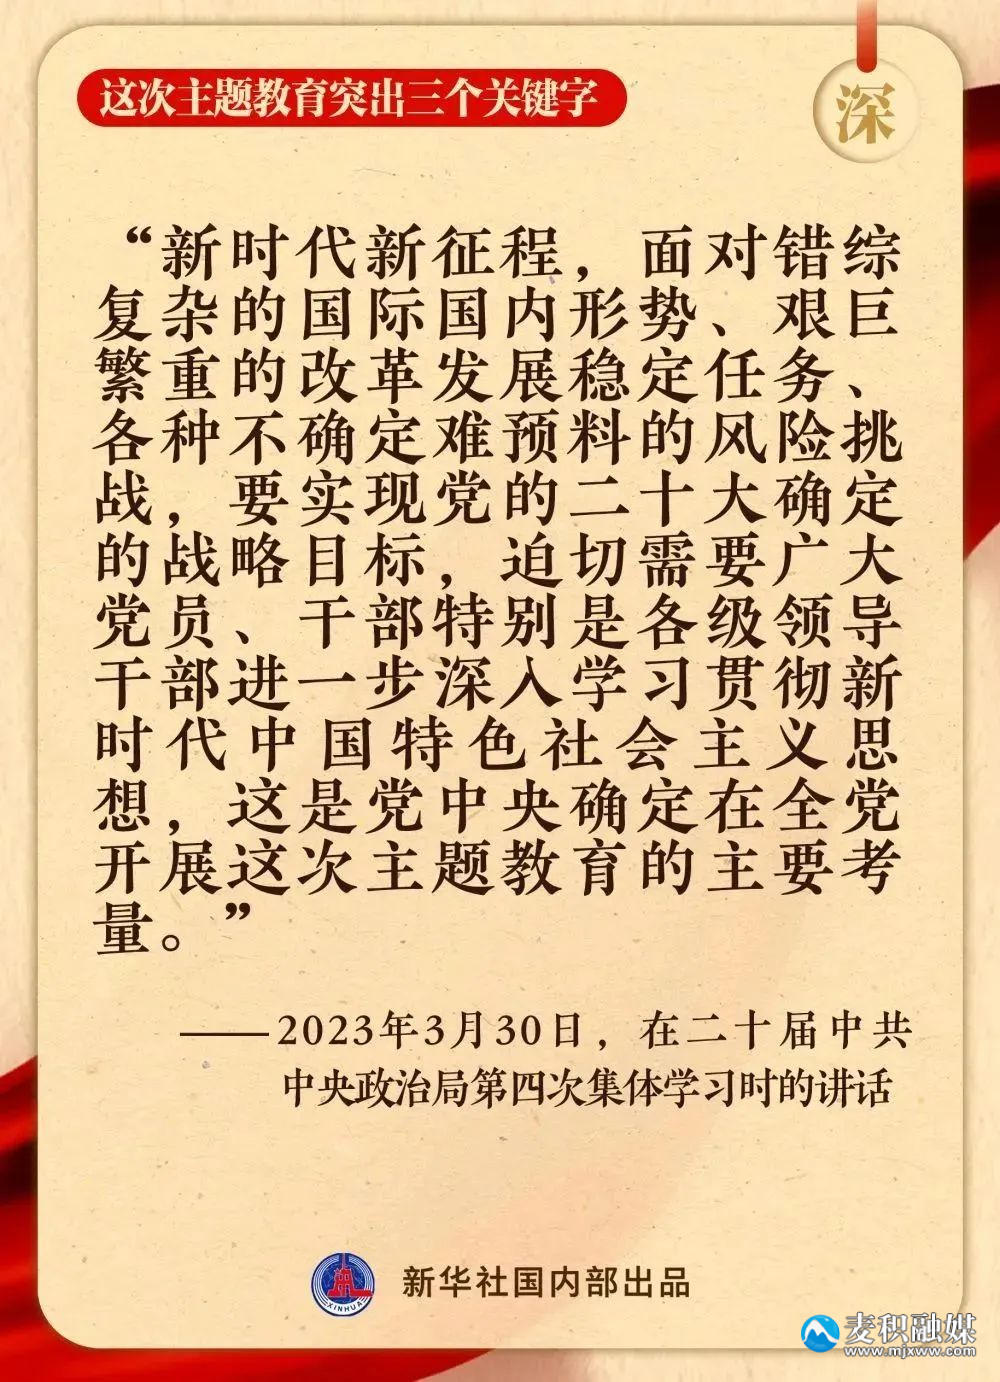 这次主题教育突出三个关键字
深
“新时代新征程，面对错综
复杂的国际国内形势、艰巨
繁重的改革发展稳定任务、
各种不确定难预料的风险挑
战，要实现党的二十大确定
的战略目标，迫切需要广大
党员、干部特别是各级领导
干部进一步深入学习贯彻新
时代中国特色社会主义思
想，这是党中央确定在全党
开展这次主题教育的主要考
量。”
——2023年3月30日，在二十届中共
中央政治局第四次集体学习时的讲话
XINHUA
新华社国内部出品
麦积融媒
www.mjxww.com